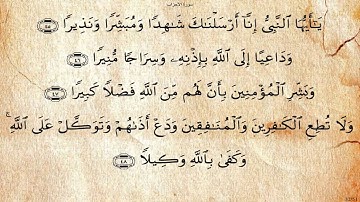 سورة الأحزاب
يَٰٓأَيُّهَا ٱلنَّبِىُّ إِنَّآ أَرْسَلْنَٰكَ شَٰهِدًا وَمُبَشِّرًا وَنَذِيرًا ٤٥
وَدَاعِيًا إِلَى ٱللَّهِ بِإِذْنِهِۦ وَسِرَاجًا مُّنِيرًا ٤٦
وَبَشِّرِ ٱلْمُؤْمِنِينَ بِأَنَّ لَهُم مِّنَ ٱللَّهِ فَضْلًا كَبِيرًا ٤٧
وَلَا تُطِعِ ٱلْكَٰفِرِينَ وَٱلْمُنَٰفِقِينَ وَدَعْ أَذَىٰهُمْ وَتَوَكَّلْ عَلَى ٱللَّهِ ۚ
وَكَفَىٰ بِٱللَّهِ وَكِيلًا ٤٨